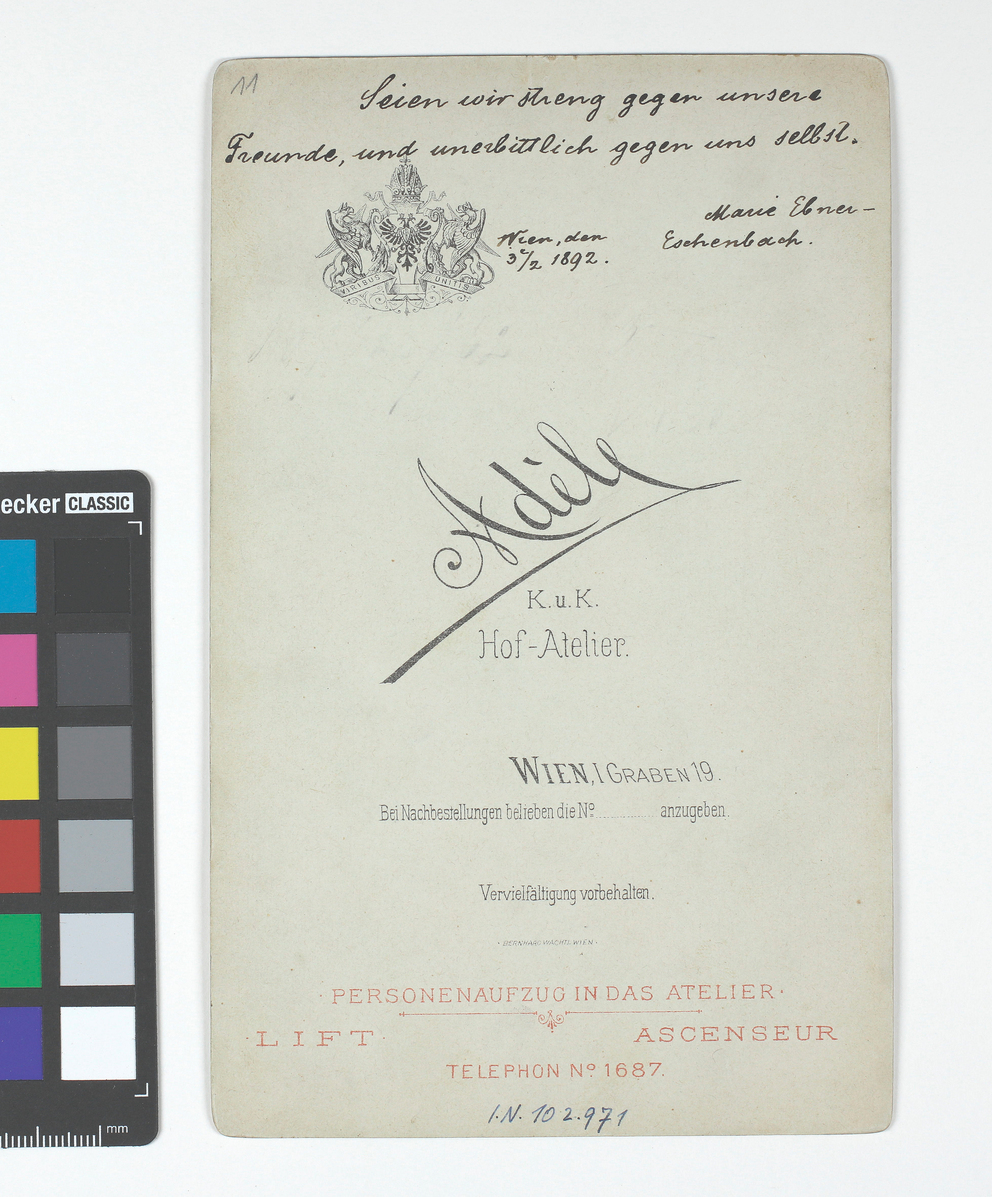 11
Seien wir streng gegen unsere
Freunde, und unerbittlich gegen uns selbst.
Marie Ebner-
Eschenbach.
Wien, den
3t/2 1892.
VIRIBUS UNITIS
Adèle
K. u. K.
Hof-Atelier.
WIEN, I GRABEN 19.
Bei Nachbestellungen belieben die No ............... anzugeben.
Vervielfältigung vorbehalten.
· BERNHARD WACHTL WIEN ·
· PERSONENAUFZUG IN DAS ATELIER ·
· LIFT · ASCENSEUR
TELEPHON No 1687.
I.N. 102.971
ecker CLASSIC
mm